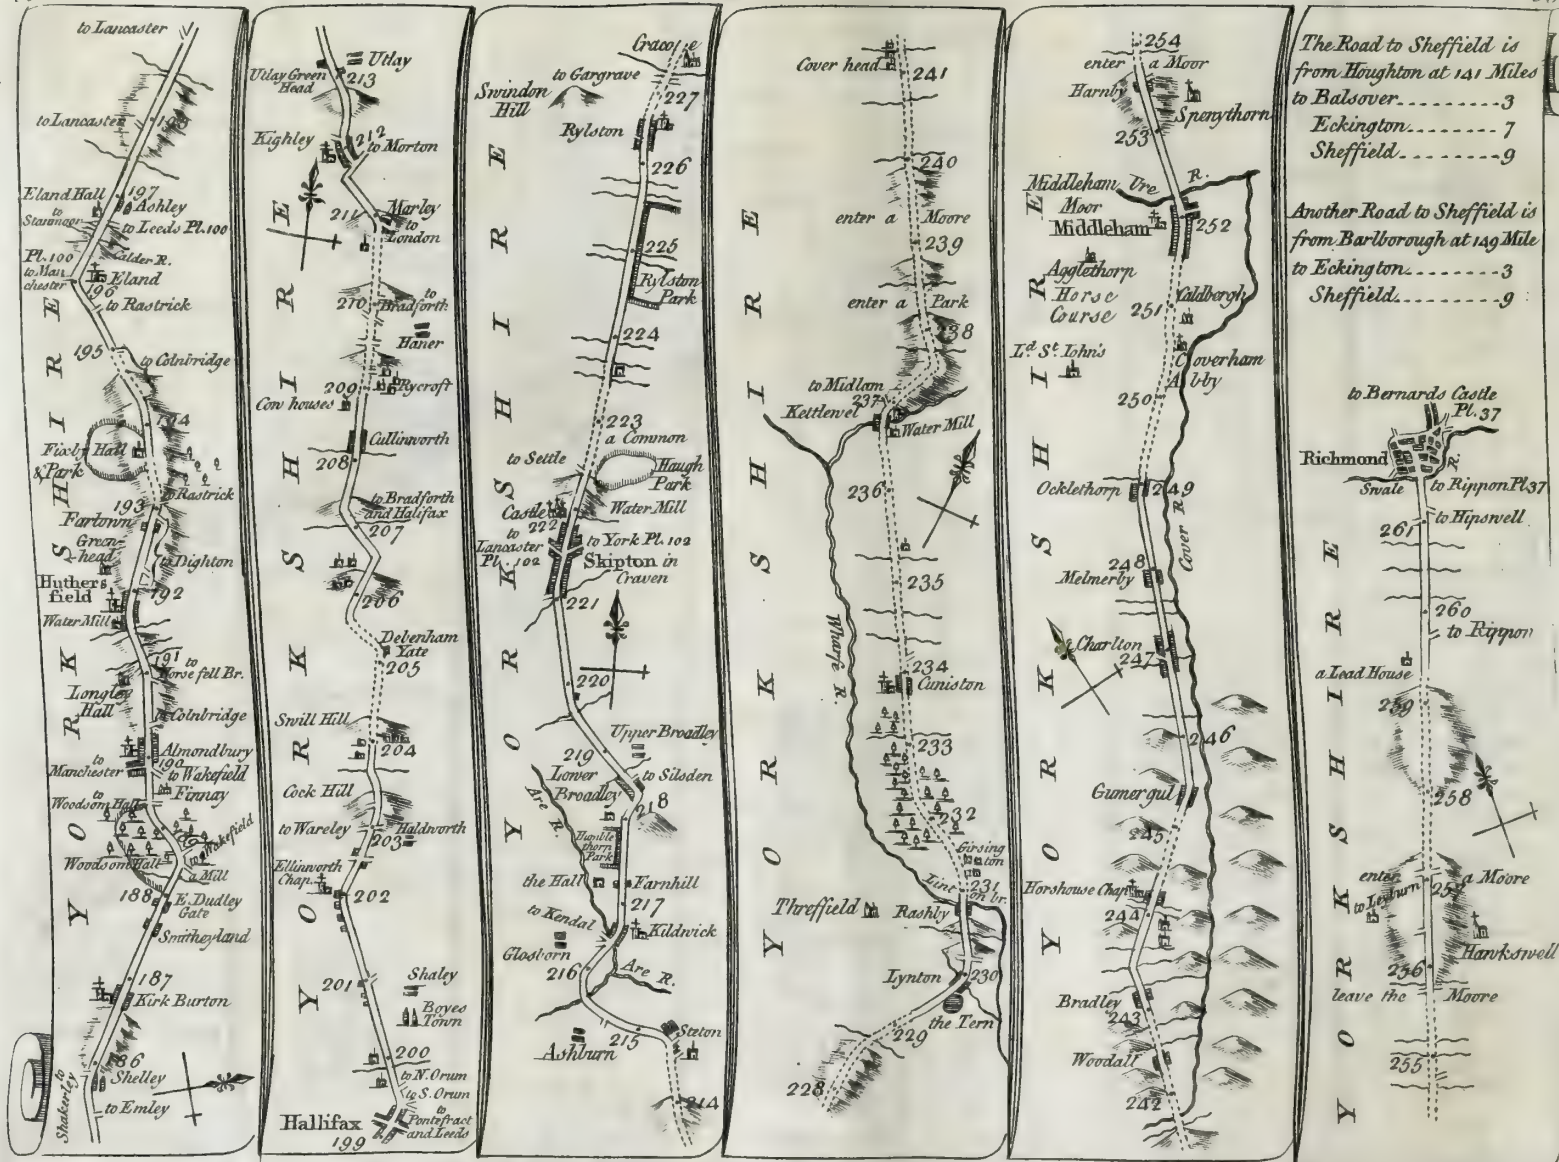 to Lancaster
to Lancaster
Eland Hall
197
Ashley
to
Stanmoor
to Leeds Pl.100
Pl. 100
to Man
chester
Calder R.
Eland
196
to Rastrick
195
to Colnbridge
194
Fixby Hall
& Park
to Rastrick
193
Fartown
Green-
head
to Dighton
Huthers
field
192
Water Mill
191
to
Horse fell Br.
Longley
Hall
to Colnbridge
Almondbury
190
to
Manchester
to Wakefield
Finnay
to
Woodsom Hall
to Wakefield
Woodsom Hall
a Mill
188
E. Dudley
Gate
Smitheyland
187
Kirk Burton
186
Shelley
to
Shakerley
to Emley
YORKSHIRE
Utlay
Utlay Green
Head
213
Kighley
212
to Morton
211
Marley
to
London
210
to
Bradforth
Haner
209
Rycroft
Cow houses
Cullinworth
208
to Bradforth
and Halifax
207
206
Debenham
Yate
205
Swill Hill
204
Cock Hill
to Wareley
203
Haldworth
Ellinworth
Chap.
202
201
Shaley
Boyes
Town
200
to N. Orum
to S. Orum
Hallifax
to
Pontefract
and Leeds
199
YORKSHIRE
Gracose
to Gargrave
Swindon
Hill
227
Rylston
226
225
Rylston
Park
224
223
a Common
to Settle
Haugh
Park
Castle
Water Mill
222
to
Lancaster
Pl. 102
to York Pl. 102
Skipton in
Craven
221
220
219
Upper Broadley
Lower
Broadley
to Silsden
218
Are R.
Humble
thorn
Park
the Hall
Farnhill
217
to Kendal
Kildwick
Glosborn
216
Are R.
Steton
215
Ashburn
214
YORKSHIRE
Cover head
241
240
enter a Moore
239
enter a Park
238
to Midlam
237
Kettlewel
Water Mill
236
235
Wharfe R.
234
Cuniston
233
232
Girsing
ton
Lint
on br.
231
Threffield
Rashby
Lynton
230
the Tern
229
228
YORKSHIRE
254
enter a Moor
Harnby
Spenythorn
253
Middleham
Moor
Ure R.
Middleham
252
Agglethorp
Horse
Course
251
Caldbergh
Ld. St. Iohn's
Coverham
Abby
250
Ocklethorp
249
Cover R.
248
Melmerby
Charlton
247
246
Gumergul
245
Horshouse Chap
244
Bradley
243
Woodall
242
YORKSHIRE
The Road to Sheffield is
from Houghton at 141 Miles
to Balsover.........3
Eckington.........7
Sheffield.........9
Another Road to Sheffield is
from Barlborough at 149 Mile
to Eckington.........3
Sheffield.........9
to Bernards Castle
Pl. 37
Richmond
R.
Swale
to Rippon Pl 37
to Hipswell
261
260
to Rippon
a Lead House
259
258
enter a Moore
to Leyburn
257
Hawkswell
256
leave the Moore
255
YORKSHIRE